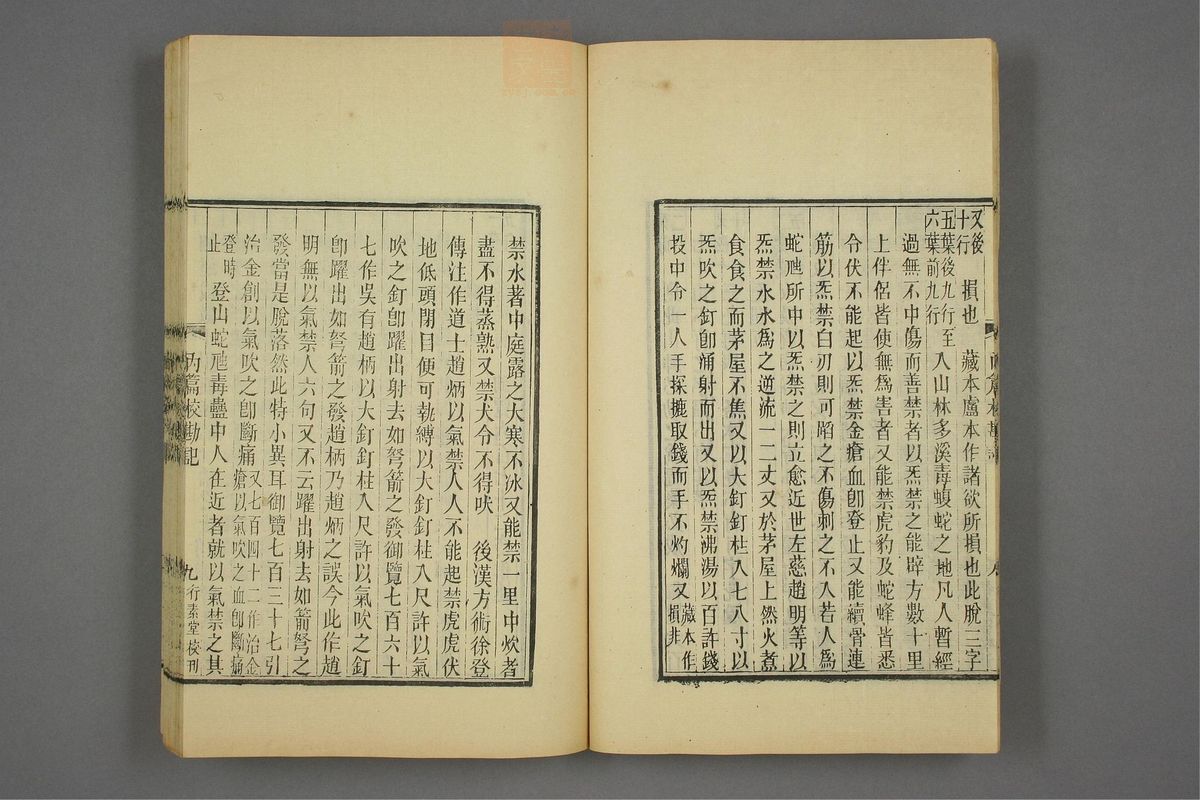 又後十行　損也　藏本盧本作諸欲所損也此脫三字
五葉後九行至六葉前九行　入山林多溪毒蝮蛇之地凡人暫經
過無不中傷而善禁者以炁禁之能辟方數十里
上伴侶皆使無爲害者又能禁虎豹及蛇蜂皆悉
令伏不能起以炁禁金瘡血卽登止又能續骨連
筋以炁禁白刃則可蹈之不傷刺之不入若人爲
蛇虺所中以炁禁之則立愈近世左慈趙明等以
炁禁水水爲之逆流一二丈又於茅屋上然火煮
食食之而茅屋不焦又以大釘釘柱入七八寸以
炁吹之釘卽涌射而出又以炁禁沸湯以百許錢
投中令一人手探摝取錢而手不灼爛又藏本作損非
禁水著中庭露之大寒不冰又能禁一里中炊者
盡不得蒸熟又禁犬令不得吠　後漢方術徐登
傳注作道士趙炳以氣禁人人不能起禁虎虎伏
地低頭閉目便可執縛以大釘釘柱入尺許以氣
吹之釘卽躍出射去如弩箭之發御覽七百六十
七作吳有趙柄以大釘釘柱入尺許以氣吹之釘
卽躍出如弩箭之發趙柄乃趙炳之誤今此作趙
明無以氣禁人六句又不云躍出射去如箭弩之
發當是脫落然此特小異耳御覽七百三十七引
治金創以氣吹之卽斷痛又七百四十二作治金瘡以氣吹之血卽斷痛
登時止　登山蛇虺毒蠱中人在近者就以氣禁之其
內篇校勘記　九　行素堂校刊